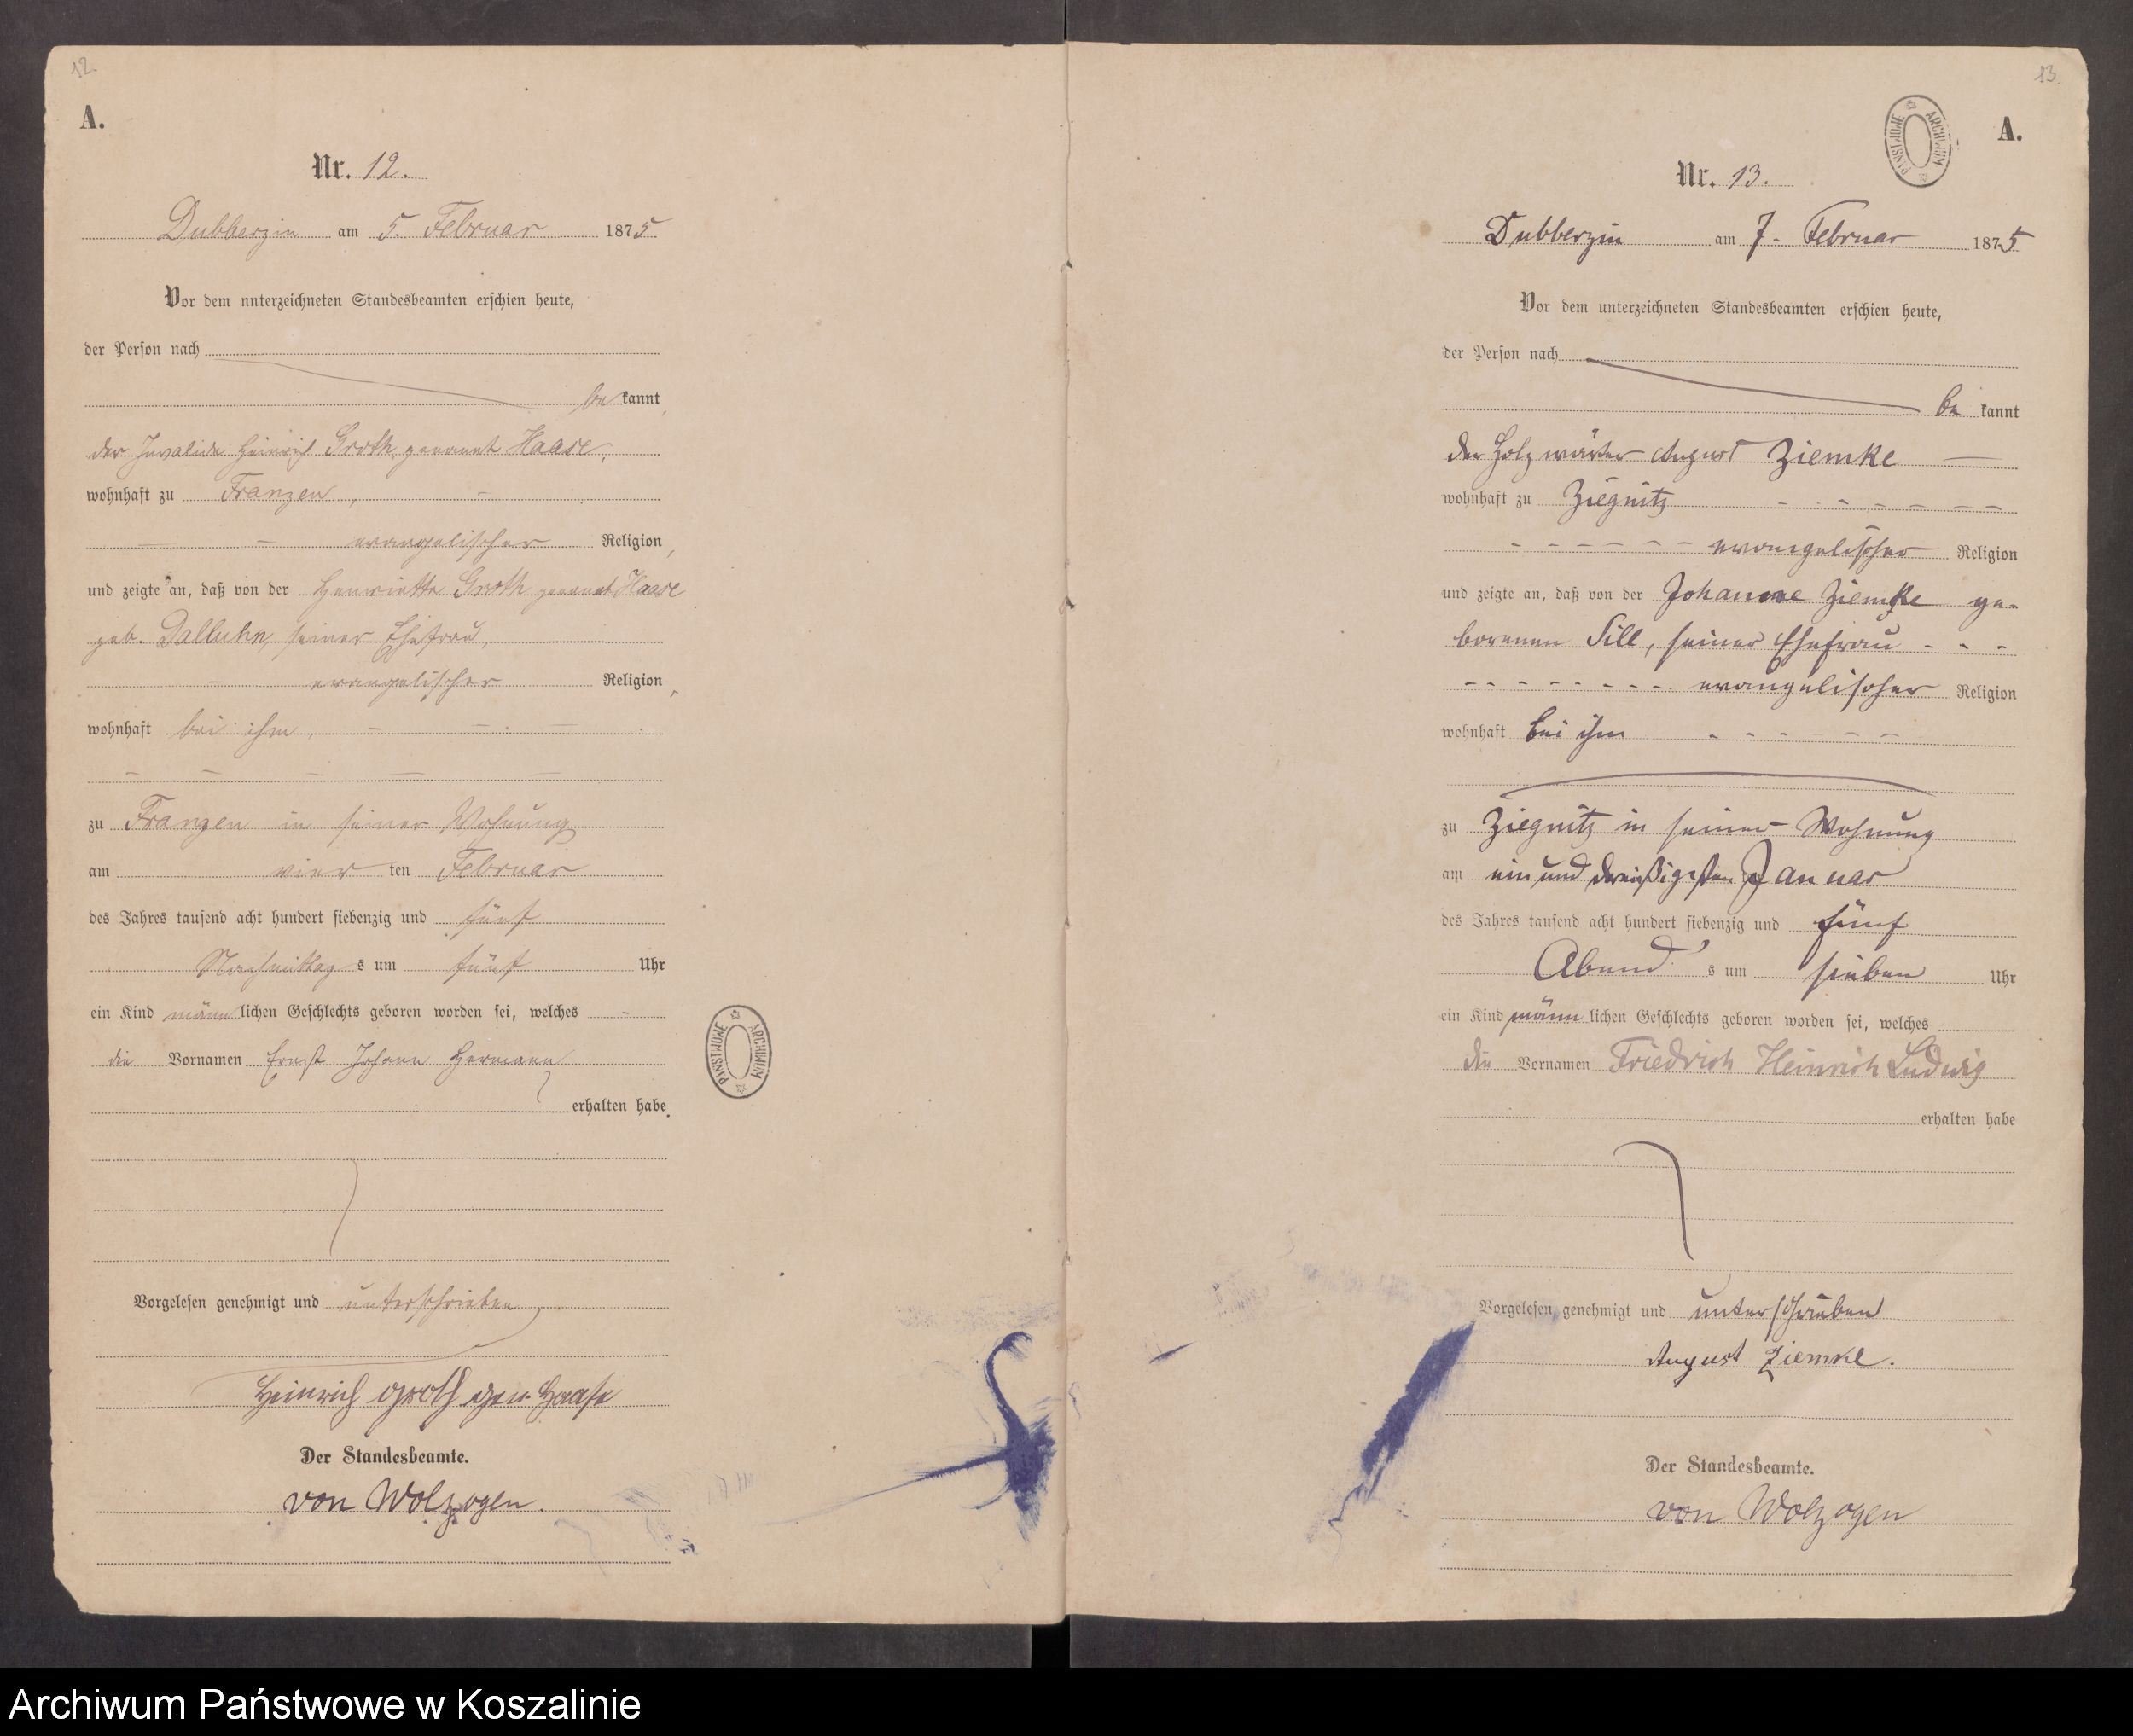 12.
A.
Nr. 12.
Dubberzin am 5. Februar 1875
Vor dem unterzeichneten Standesbeamten erschien heute,
der Person nach
be kannt,
der Invalide Heinrich Groth, genannt Haase,
wohnhaft zu Franzen,
evangelischer Religion,
und zeigte an, daß von der Henriette Groth genannt Haase
geb. Dalluhn, seiner Ehefrau,
evangelischer Religion,
wohnhaft bei ihm,
zu Franzen in seiner Wohnung
am vier ten Februar
des Jahres tausend acht hundert siebenzig und fünf
Nachmittag s um fünf Uhr
ein Kind männ lichen Geschlechts geboren worden sei, welches
die Vornamen Ernst Johann Hermann
erhalten habe.
Vorgelesen genehmigt und unterschrieben
Heinrich Groth gen. Haase
Der Standesbeamte.
von Wolzogen.
PAŃSTWOWE ARCHIWUM
13.
A.
PAŃSTWOWE ARCHIWUM
Nr. 13.
Dubberzin am 7. Februar 1875
Vor dem unterzeichneten Standesbeamten erschien heute,
der Person nach
be kannt
der Holzwärter August Ziemke
wohnhaft zu Ziegnitz
evangelischer Religion
und zeigte an, daß von der Johanne Ziemke ge-
borenen Sill, seiner Ehefrau
evangelischer Religion
wohnhaft bei ihm
zu Ziegnitz in seiner Wohnung
am ein und dreißigsten Januar
des Jahres tausend acht hundert siebenzig und fünf
Abend s um sieben Uhr
ein Kind männ lichen Geschlechts geboren worden sei, welches
die Vornamen Friedrich Heinrich Ludwig
erhalten habe
Vorgelesen, genehmigt und unterschrieben
August Ziemke.
Der Standesbeamte.
von Wolzogen
Archiwum Państwowe w Koszalinie